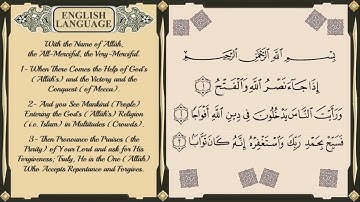 ENGLISH
LANGUAGE
With the Name of Allah,
the All-Merciful, the Very-Merciful.
1- When There Comes the Help of God's
( Allah's) and the Victory and the
Conquest ( of Mecca).
2- And you See Mankind ( People)
Entering the God's ( Allah's) Religion
( i.e. Islam) in Multitudes ( Crowds).
3- Then Pronounce the Praises ( the
Purity) of Your Lord and ask for His
Forgiveness; Truly, He is the One ( Allah)
Who Accepts Repentance and Forgives.
بِسْمِ اللَّهِ الرَّحْمَٰنِ الرَّحِيمِ
إِذَا جَاءَ نَصْرُ اللَّهِ وَالْفَتْحُ ١
وَرَأَيْتَ النَّاسَ يَدْخُلُونَ فِي دِينِ اللَّهِ أَفْوَاجًا ٢
فَسَبِّحْ بِحَمْدِ رَبِّكَ وَاسْتَغْفِرْهُ إِنَّهُ كَانَ تَوَّابًا ٣